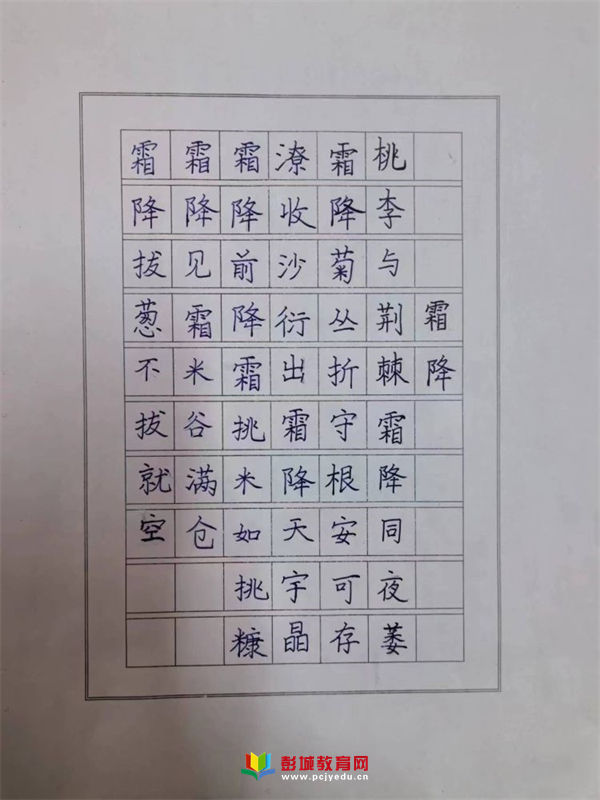 霜降
桃李与荆棘霜降同夜萎
霜降菊丛折守根安可存
潦收沙衍出霜降天宇晶
霜降前降霜挑米如挑糠
霜降见霜米谷满仓
霜降拔葱不拔就空
彭城教育网
www.pcjyedu.cn